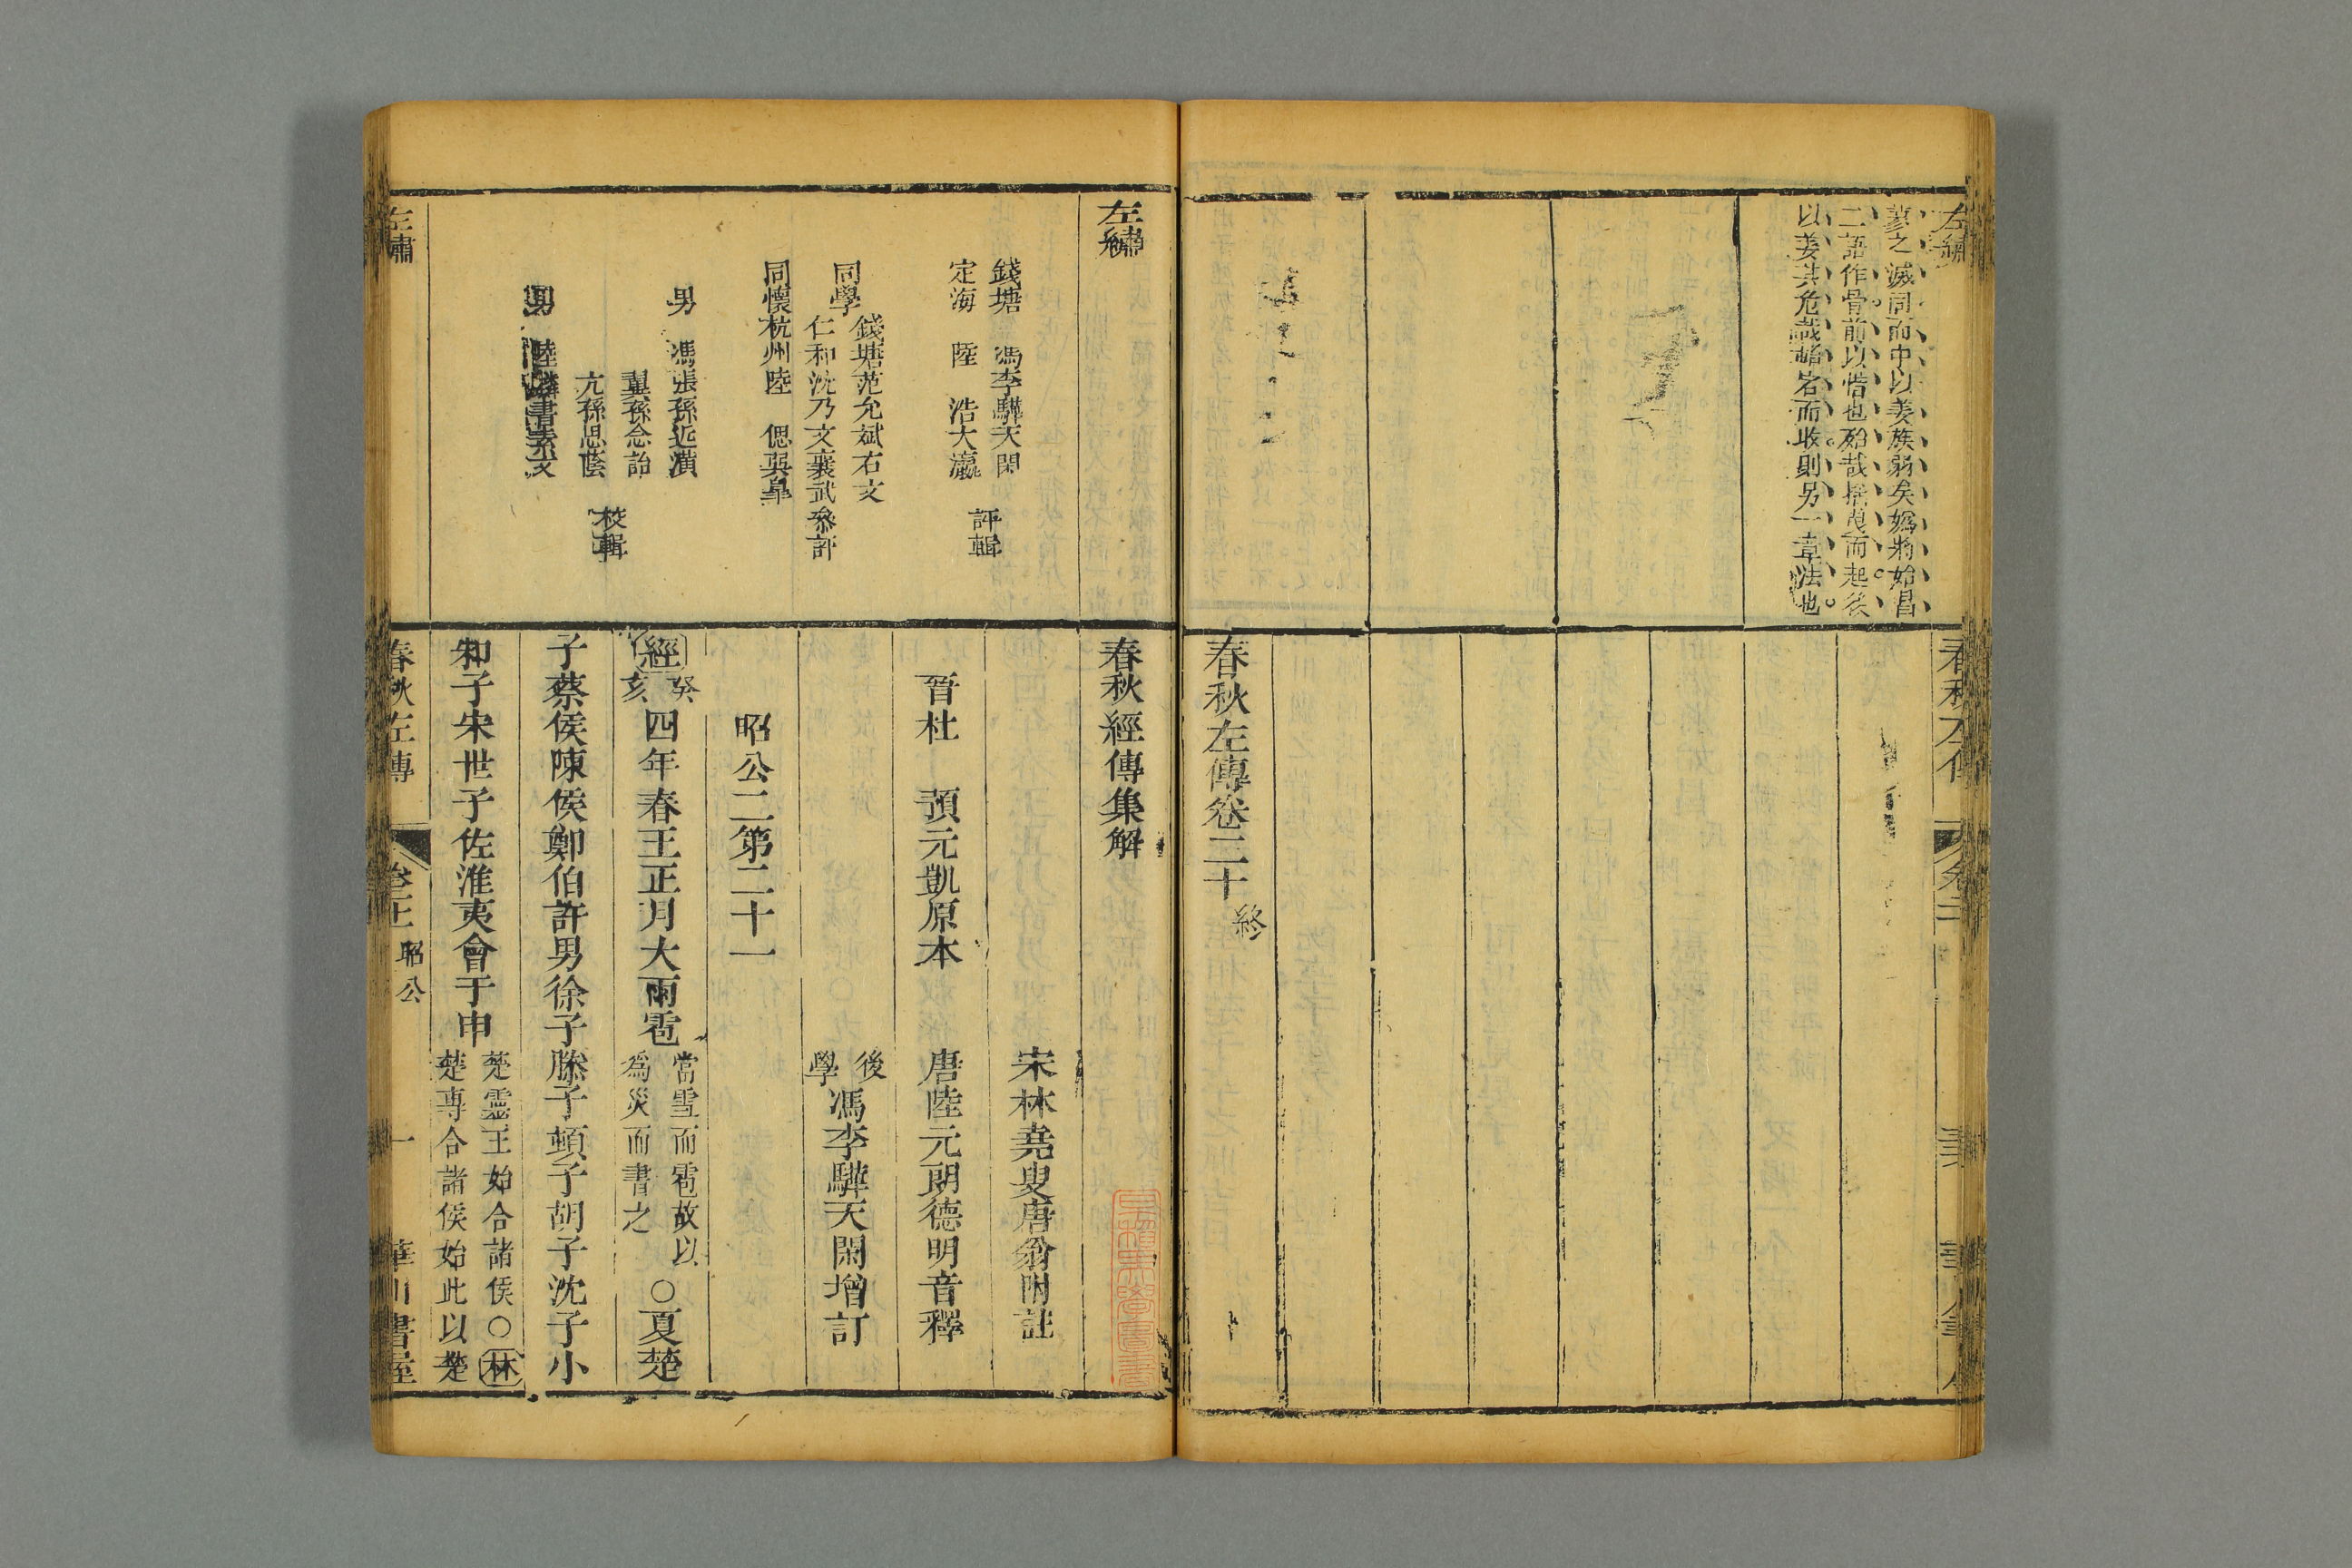 左繡
蓼之滅同而中以姜族弱矣媯將始昌
二語作骨前以惜也殆哉
以姜其危哉結宕而收則另一章法也
春秋左傳卷二十終
左繡
錢塘 馮李驊天閑
定海 陸 浩大瀛
評輯
同學
錢塘范允斌右文
仁和沈乃文襄武
參評
同懷杭州陸 偲巽皐
男 馮張孫近潢
翼孫念詒
亢孫思蔭
男 陸書素文
校輯
春秋經傳集解
宋林堯叟唐翁附註
晉杜 預元凱原本 唐陸元朗德明音釋
後學馮李驊天閑增訂
昭公二第二十一
經癸亥四年春王正月大雨雹當雪而雹故以為災而書之○夏楚
子蔡侯陳侯鄭伯許男徐子滕子頓子胡子沈子小
邾子宋世子佐淮夷會于申楚靈王始合諸侯○林楚專合諸侯始此以楚
左繡
春秋左傳
昭公
一
華川書屋